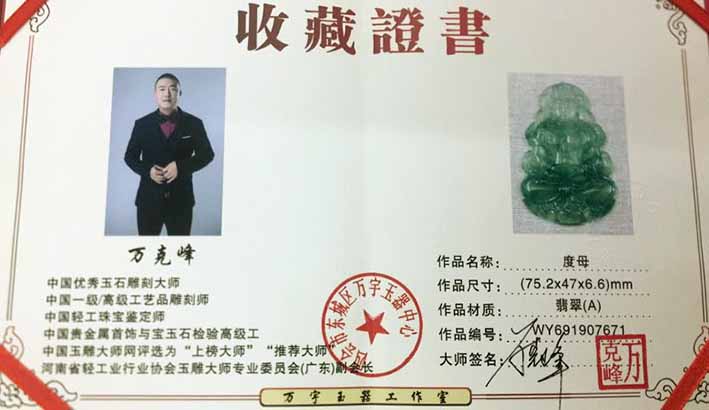 收藏證書
万克峰
中国优秀玉石雕刻大师
中国一级/高级工艺品雕刻师
中国轻工珠宝鉴定师
中国贵金属首饰与宝玉石检验高级工
中国玉雕大师网评选为“上榜大师”“推荐大师”
河南省轻工业行业协会玉雕大师专业委员会(广东)副会长
作品名称: 度母
作品尺寸: (75.2x47x6.6)mm
作品材质: 翡翠(A)
作品编号: WY691907671
大师签名:
万克峰
四会市东城区万字玉器中心
万字玉器工作室